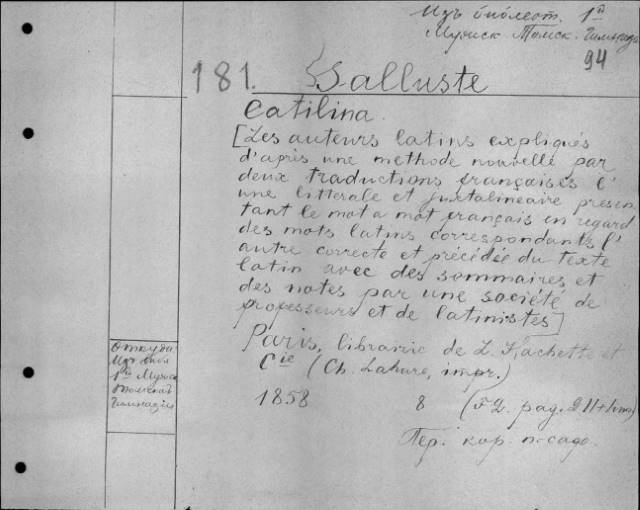 Изъ библіот. 1й
Мужск. Томск. Гимназіи
94
181. Salluste
Catilina.
[Les auteurs latins expliqués
d'après une methode nouvelle par
deux traductions françaises l'
une littérale et juxtalineaire presen
tant le mot a mot français en regard
des mots latins correspondants l'
autre correcte et précédée du texte
latin avec des sommaires et
des notes par une société de
professeurs et de latinistes]
Paris, librairie de L. Hachette et
Cie (Ch. Lahure, impr.)
1858 8 pag.
Пер. кор.
Откуда
Изъ библ
1й Мужск
Томской
Гимназіи